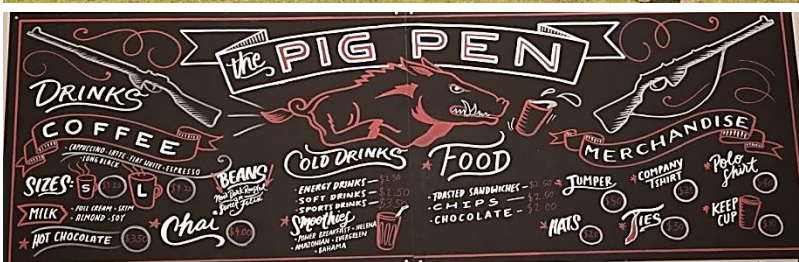 the PIG PEN
DRINKS
COFFEE
- CAPPUCCINO - LATTE - FLAT WHITE - ESPRESSO
- LONG BLACK
SIZES: S L
MILK - FULL CREAM - SKIM
- ALMOND - SOY
HOT CHOCOLATE $3.50
BEANS
Chai $4.00
COLD DRINKS
- ENERGY DRINKS — $2.50
- SOFT DRINKS — $1.50
- SPORTS DRINKS — $3.50
Smoothies
- POWER BREAKFAST - HELENA
- AMAZONIAN - EVERGREEN
- BAHAMA
FOOD
- TOASTED SANDWICHES — $2.50
- CHIPS — $2.50
- CHOCOLATE — $2.00
MERCHANDISE
JUMPER $50
COMPANY TSHIRT $25
Polo Shirt
HATS $20
TIES $30
KEEP CUP